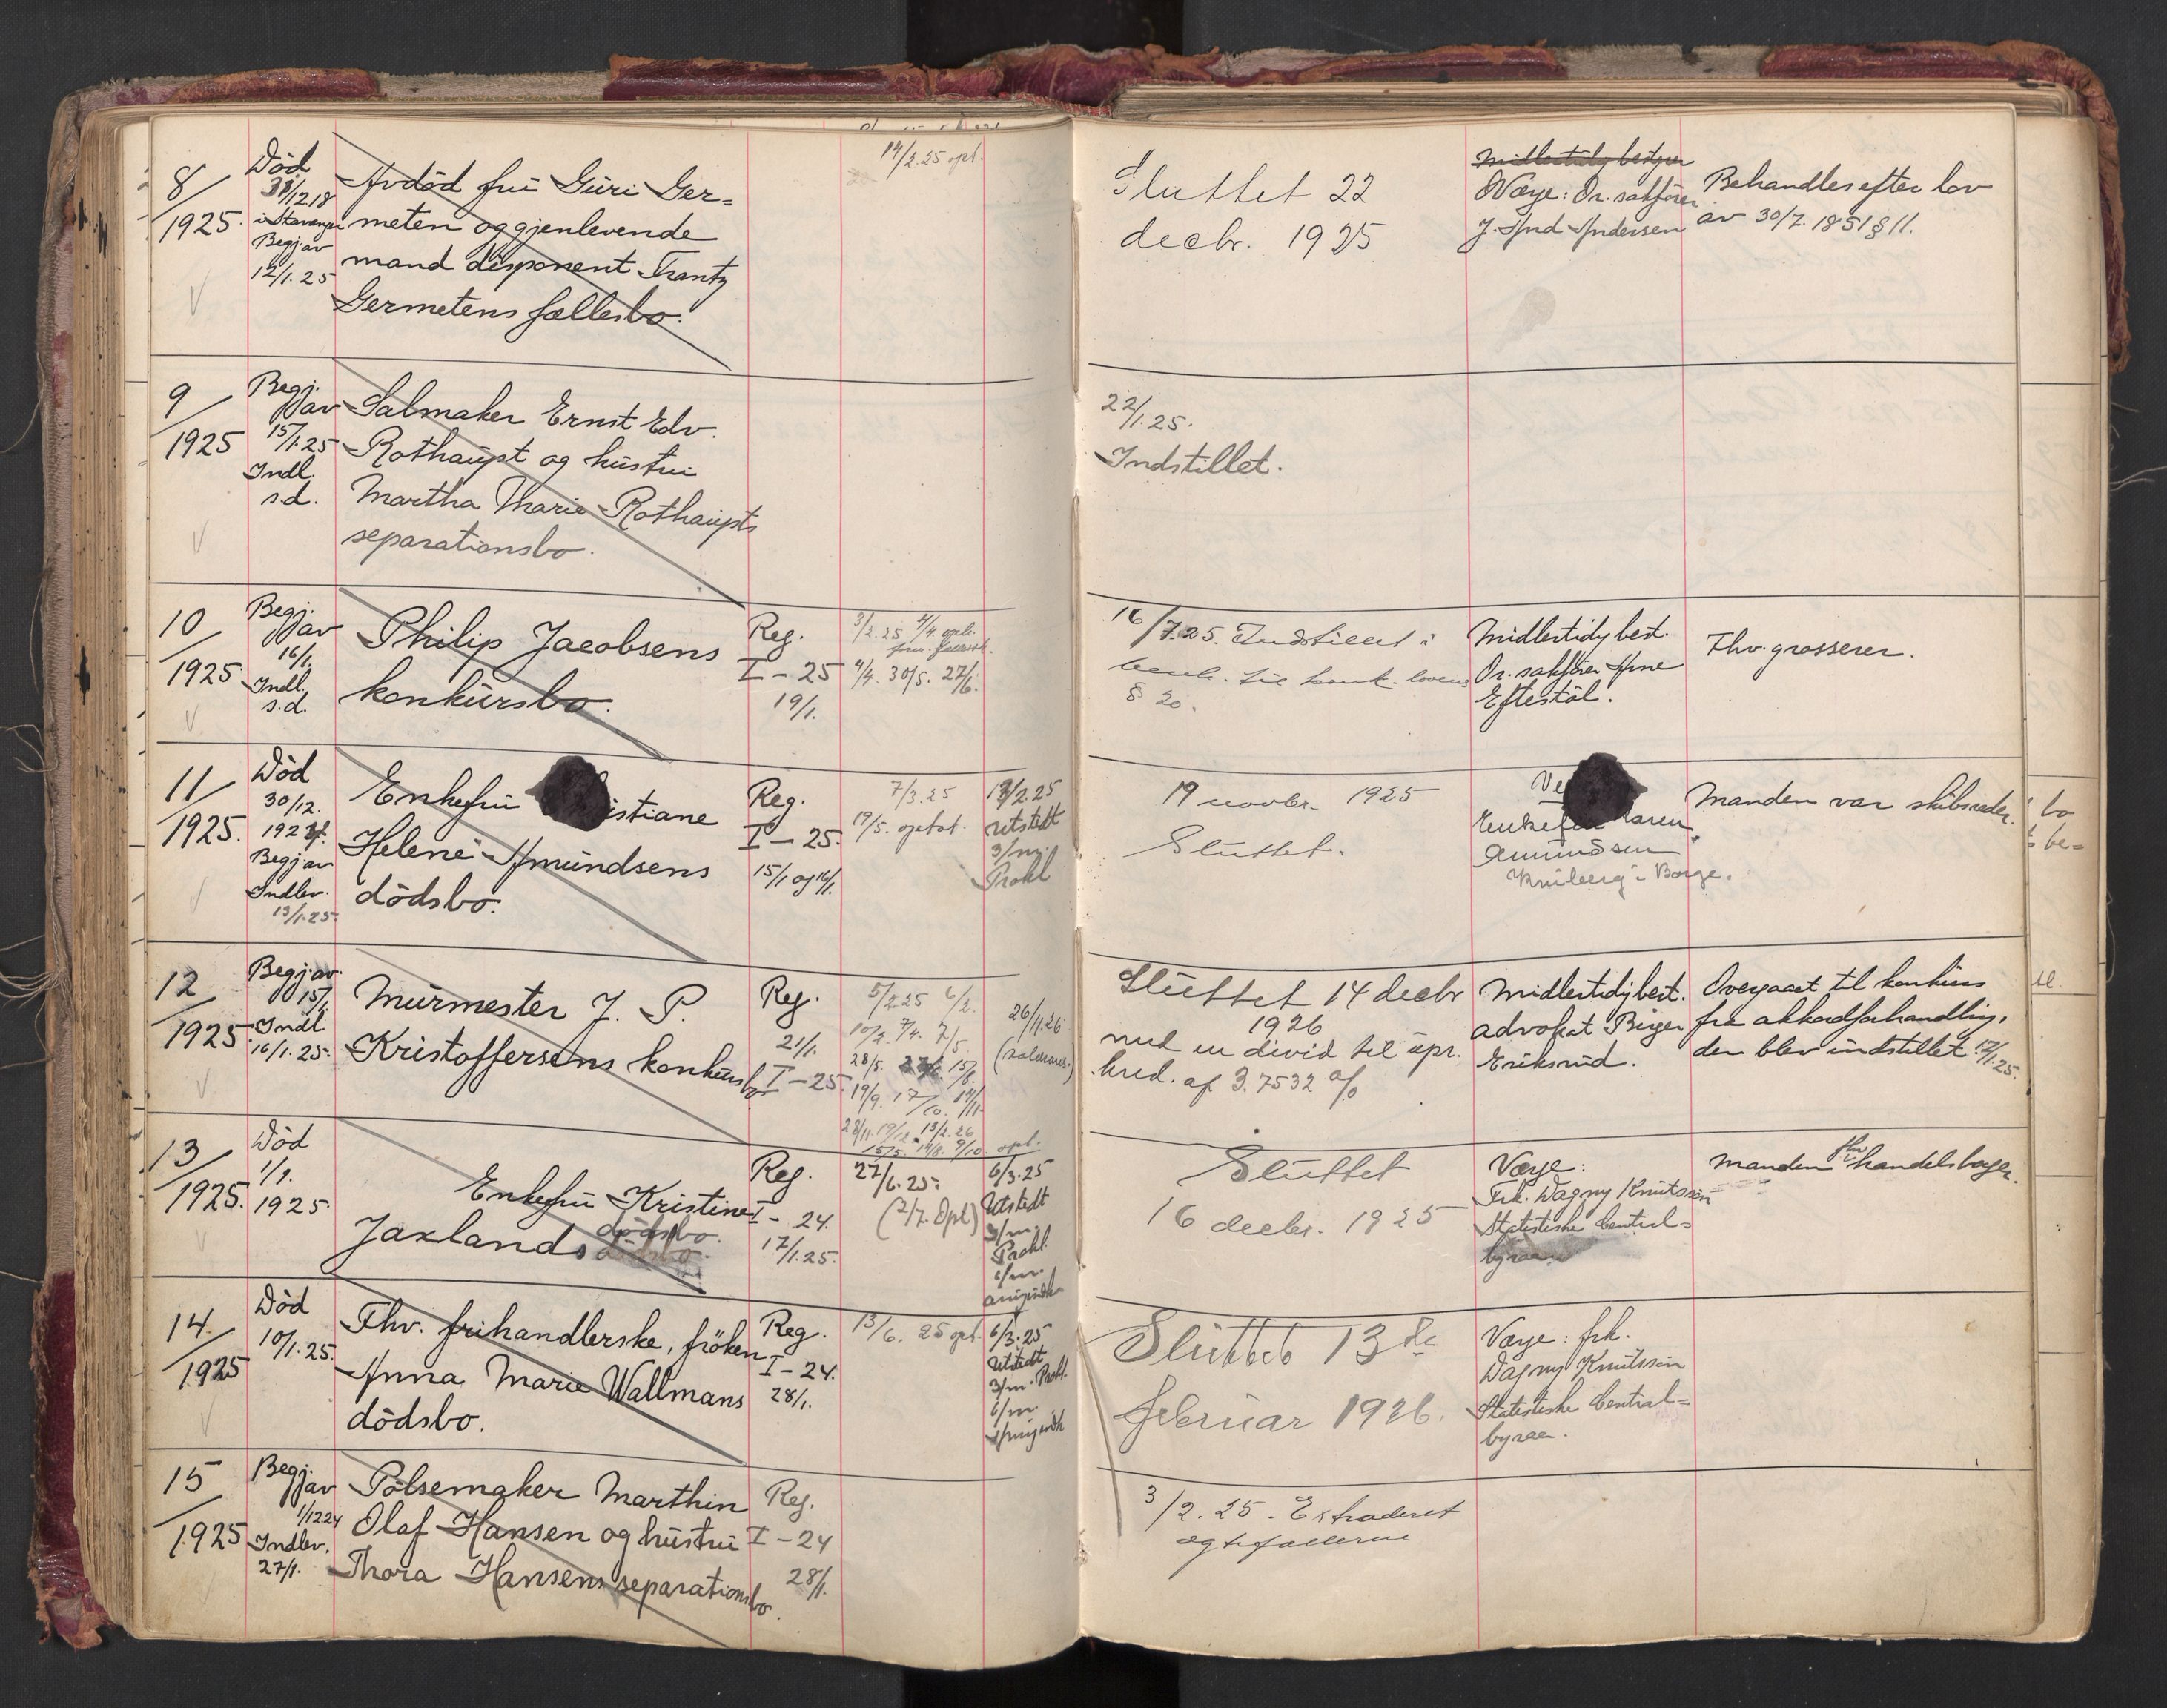 8/1925.
Død
31/12.18
i Stavanger
Begj. av
12/1.25
Avdød frú Gúri Ger=
meten og gjenlevende
mand disponent Frantz
Germetens fællesbo.
14/2.25 opt.
Sluttet 22
decbr. 1925
Midlertidig bestyrer
Værge: Or. sakfører
J. And. Andersen
Behandles efter lov
av 30/7. 1851 § 11.
9/1925
Begj.
av
15/1.25
Indl.
s.d.
Salmaker Ernst Edv.
Rothaúpt og hústrú
Martha Marie Rothaúpts
separationsbo.
22/1.25.
Indstillet.
10/1925
Begj.
av
16/1.
Indl.
s.d.
Philip Jacobsens
konkúrsbo.
Reg.
I - 25
19/1.
3/2.25 4/4. opt.
4/4. 30/5. 27/6.
16/7.25. Indstillet i
henh. til konk. lovens
§ 20.
Midlertidig best.
Or. sakfører Arne
Eftestøl.
Fhv. grosserer.
11/1925.
Død
30/12.
1924.
Begj av
Indlev.
13/1.25.
Enkefrú istiane
Helene Amúndsens
dødsbo.
Reg.
I - 25.
15/1 og 16/1.
7/3.25
19/5. optat.
13/2.25
Utstedt
3/m.
Prokl
19 novbr. 1925
Sluttet.
Enkefrú aren
Amundsen
i Borge.
Manden var skibsreder.
12/1925
Begj. av.
15/1
Indl.
16/1.25.
Múrmester J. P.
Kristoffersens konkúrsbo
Reg.
21/1.
I - 25.
5/2.25 6/2.
10/2. 7/4. 7/5.
28/5. 15/8.
19/9. 17/10. 14/11.
28/11. 19/12. 13/2.26
15/5. 14/8. 9/10. opt.
26/11.26
Slúttet 14 decbr
1926
med en divid til úpr.
kred. af 3.7532 %
Midlertidig best.
advokat Birger
Eriksrúd.
Overgaaet til konkúrs
fra akkordforhandling,
den blev indstillet 12/1.25.
13/1925.
Død
1/1.
1925.
Enkefrú Kristine
Jaxlands dødsbo.
Reg.
I - 24.
17/1.25.
27/6.25.
(2/7. Opt)
6/3.25
Utstedt
3/m.
Prokl.
6/m.
arvinndk.
Sluttet
16 decbr. 1925
Værge:
Frk. Dagny Knútssøn
Statistiske Central=
byraa.
Manden fhv. handelsborger.
14/1925
Død
10/1.25.
Fhv. frihandlerske, frøken
Anna Marie Wallmans
dødsbo.
Reg.
I - 24.
28/1.
13/6. 25 opt.
6/3.25
Utstedt
3/m. Prokl.
6/m.
Arvinndk
Slúttet 13de
febrúar 1926.
Værge: frk.
Dagny Knútssøn
Statistiske Central=
byraa.
15/1925
Begj.
av
1/12.24
Indlev.
27/1.
Pølsemaker Marthin
Olaf Hansen og hústrú
Thora Hansens separationsbo.
Reg.
I - 24
28/1.
3/2.25. Extraderet
egtefællerne